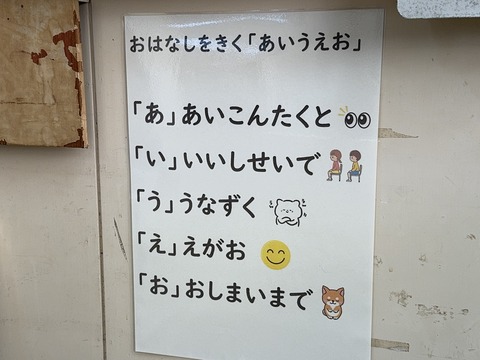 おはなしをきく「あいうえお」
「あ」あいこんたくと
「い」いいしせいで
「う」うなずく
「え」えがお
「お」おしまいまで